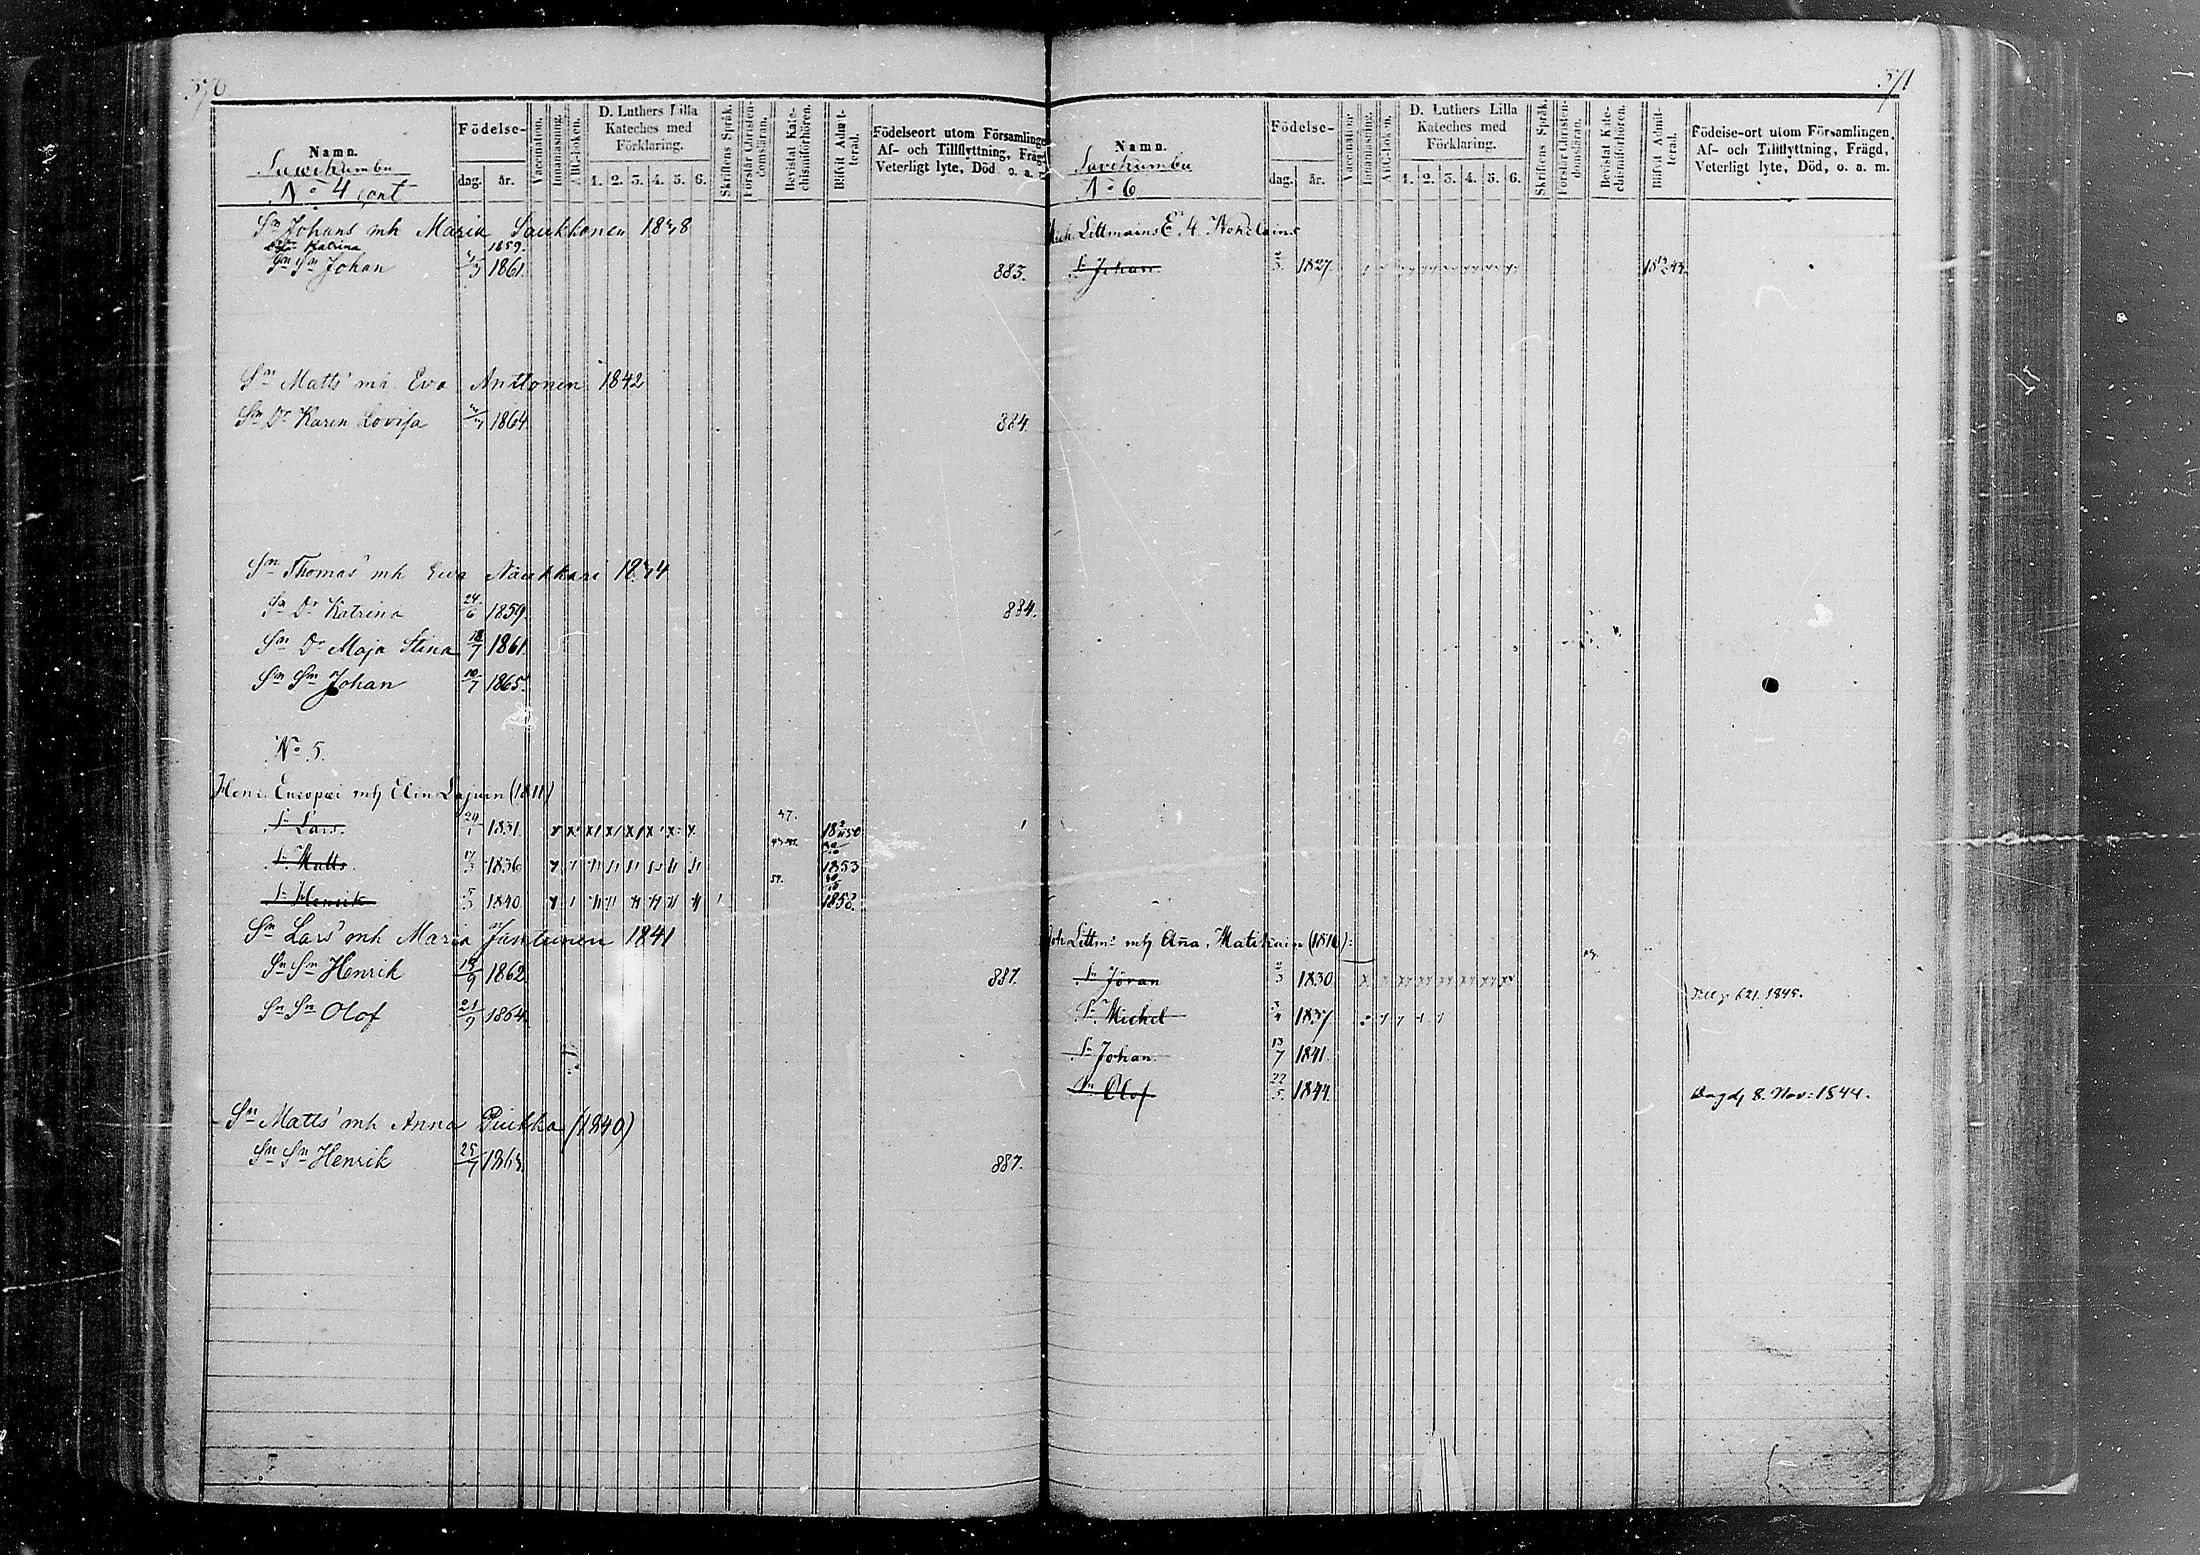 370
Namn.
Födelse-
dag. år.
Vaccination.
Innanläsning.
ABC-boken.
D. Luthers Lilla
Kateches med
Förklaring.
1. 2. 3. 4. 5. 6.
Skriftens Språk.
Förstår Christen-
domsläran.
Bevistat Kate-
chismiförhören.
Blifvit Admit-
terad.
Födelseort utom Församlingen
Af- och Tillflyttning, Frägd,
Veterligt lyte, Död o. a. m.
Savikumbu
No 4 cont
Sn Johans mh Maria Saukkonen 1838
Katrina 1859.
Sn Sn Johan 1861 883.
Sn Matts' mh Eva Anttonen 1842
Sn Dr Karin Lovisa 1864 884.
Sn Thomas' mh Eva Naukkari 1834
Sn Dr Katrina 24/6 1859. 884.
Sn Dr Maja Stina 18/7 1861
Sn Sn Johan 10/7 1865.
No 5.
Henr. Europæi mh Elin Lajunen (1811)
Sn Lars. 24/1 1831. 47. 1850
Sn Matts. 1836 1853
Sn Henrik 1840 57. 1858.
Sn Lars' mh Maria Jantunen 1841
Sn Sn Henrik 15/9 1862 887.
Sn Sn Olof 21/9 1864
Sn Matts' mh Anna Pirkka (1840)
Sn Sn Henrik 25/7 1863. 887.
371
Namn.
Födelse-
dag. år.
Vaccination.
Innanläsning.
ABC-boken.
D. Luthers Lilla
Kateches med
Förklaring.
1. 2. 3. 4. 5. 6.
Skriftens Språk.
Förstår Christen-
domsläran.
Bevistat Kate-
chismiförhören.
Blifvit Admit-
terad.
Födelse-ort utom Församlingen,
Af- och Tillflyttning, Frägd,
Veterligt lyte, Död, o. a. m.
Savikumbu
No 6
Mich. Littmains E.
Sn Johan 1827
Joh. Littms mh Aña Matikain (1816):
Sn Jöran 2/3 1830
Sn Michel 1837 621. 1845.
Sn Johan 13/7 1841
Sn Olof 22/5 1844 8. Nov: 1844.